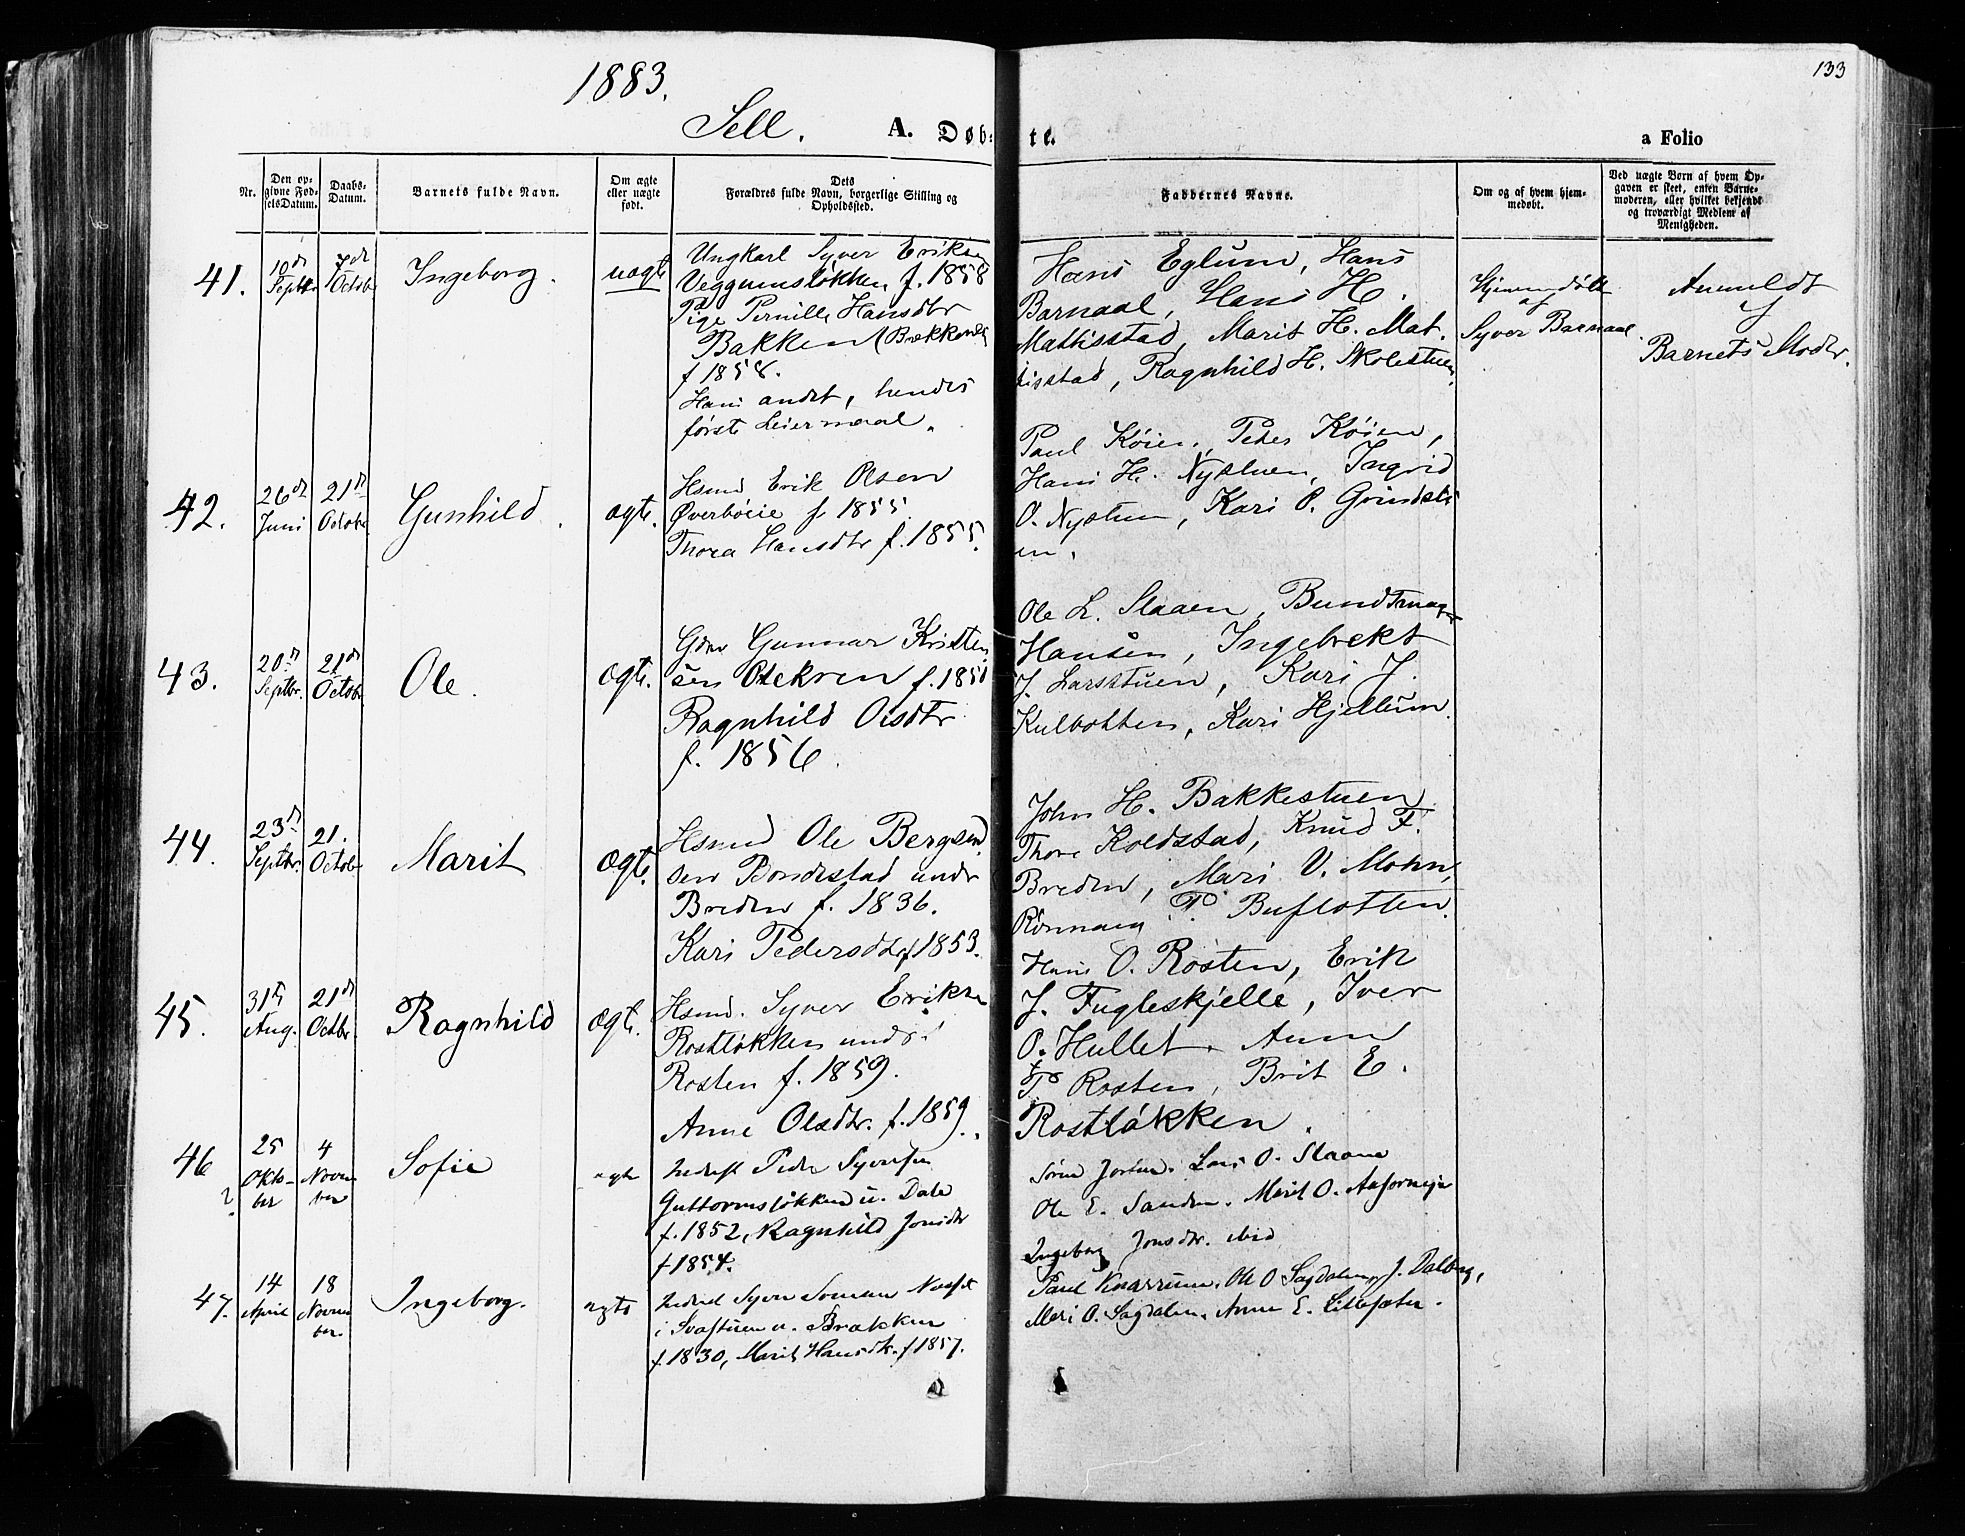 133
1883.
Sell. A. Døb-
te. a Folio
Nr.
Den op-
givne Fød-
selsDatum.
Daabs-
Datum.
Barnets fulde Navn.
Om ægte
eller uægte
født.
Dets
Forældres fulde Navn, borgerlige Stilling og
Opholdssted.
Faddernes Navne.
Om og af hvem hjem-
medøbt.
Ved uægte Børn af hvem Op-
gaven er skeet, enten Barne-
moderen, eller hvilket bekjendt
og troværdigt Medlem af
Menigheden.
41.
10de
Septbr
7de
Octob
Ingeborg.
uægte
Ungkarl Syver Eriksen
Veggumsløkken f. 1858
Pige Pernille Hansdtr
Bakken (Brækken)
f 1858.
Hans andet, hendes
første Leiermaal.
Hans Eglum, Hans
Barnaal, Hans H.
Mattisstad, Marit H. Mat-
tisstad, Ragnhild H. Skolestuen,
Hjemmedøbt
af
Syver Barnaal
Anmeldt
af
Barnets Moder.
42.
26de
Juni
21de
Octobr
Gunhild.
ægte.
Hsmd Erik Olsen
Øverbøeie f. 1855
Thora Hansdtr f. 1855.
Paul Køien, Peder Køien,
Hans H. Nystuen, Ingrid
O. Nystuen, Kari P. Grindstu
en.
43.
20de
Septbr.
21de
Octobr
Ole.
ægte.
Gdbr Gunnar Kristen
sen Olekren f. 1851
Ragnhild Olsdtr
f. 1856.
Ole L. Slaaen, Bundtmager
Hansen, Ingebrekt
J. Larsstuen, Kari J.
Kulbotten, Kari Hjellum.
44.
23de
Septbr.
21.
Octob
Marit
ægte.
Hsmd Ole Bergsvend
sen Bondestad under
Breden f. 1836.
Kari Pedersdtr f 1853.
John H. Bakkestuen
Thore Koldstad, Knud F.
Breden, Mari O. Mohn,
Rønnaug P. Buslotten.
45.
31te
Aug.
21de
Octbr.
Ragnhild
ægte.
Hsmd. Syver Eriksen
Rostløkken under
Rosten f. 1859.
Anne Olsdtr. f. 1859.
Hans O. Rosten, Erik
J. Fugleskjelle, Iver
O. Hullet, Anne
P. Rosten, Brit E.
Rostløkken.
46
25
Okto-
ber
4
Novem
ber
Sofie
ægte
Inderst Peder Syversen
Guttormsløkken u. Dale
f. 1852, Ragnhild Jonsdtr
f 1854.
Lars O. Slaaen
Ole E. Sanden, Marit O.
Ingeborg Jonsdtr. ibid
47.
14
April
18
Novem
ber
Ingeborg.
ægte
Inderst Syver
i u. Brækken
f. 1830, Marit Hansdtr. f 1857.
Paul Knarrum, Ole O Sagdalen, J. Dalberg,
Mari O. Sagdalen, Anne E. Lillesæter.